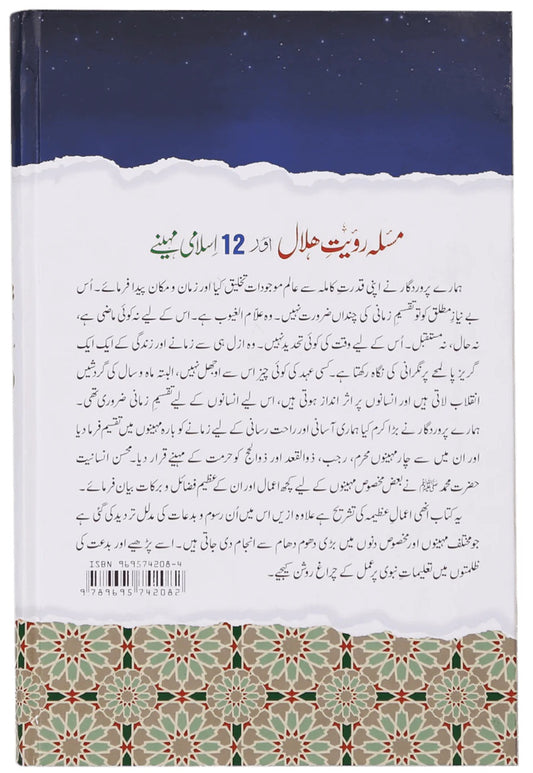 مسئلہ رؤیتِ ھلال اور 12 اسلامی مہینے
ہمارے پروردگار نے اپنی قدرتِ کاملہ سے عالم موجودات تخلیق کیا اور زمان و مکان پیدا فرمائے۔ اُس
بے نیازِ مطلق کو تو تقسیم زمانی کی چنداں ضرورت نہیں۔ وہ علّام الغیوب ہے۔ اس کے لیے نہ کوئی ماضی ہے،
نہ حال، نہ مستقبل۔ اُس کے لیے وقت کی کوئی تحدید نہیں۔ وہ ازل ہی سے زمانے اور زندگی کے ایک ایک
گریز پا لمحے پر نگرانی کی نگاہ رکھتا ہے۔ کسی عہد کی کوئی چیز اس سے اوجھل نہیں، البتہ ماہ و سال کی گردشیں
انقلاب لاتی ہیں اور انسانوں پر اثر انداز ہوتی ہیں، اس لیے انسانوں کے لیے تقسیم زمانی ضروری تھی۔
ہمارے پروردگار نے بڑا کرم کیا ہماری آسانی اور راحت رسانی کے لیے زمانے کو بارہ مہینوں میں تقسیم فرما دیا
اور ان میں سے چار مہینوں محرم، رجب، ذوالقعد اور ذوالحج کو حرمت کے مہینے قرار دیا۔ محسن انسانیت
حضرت محمد ﷺ نے بعض مخصوص مہینوں کے لیے کچھ اعمال اور ان کے عظیم فضائل و برکات بیان فرمائے۔
یہ کتاب انھی اعمالِ عظیمہ کی تشریح ہے علاوہ ازیں اس میں اُن رسوم و بدعات کی مدلل تردید کی گئی ہے
جو مختلف مہینوں اور مخصوص دنوں میں بڑی دھوم دھام سے انجام دی جاتی ہیں۔ اسے پڑھیے اور بدعت کی
ظلمتوں میں تعلیمات نبوی پر عمل کے چراغ روشن کیجیے۔
ISBN 969574208-4
9 789695 742082